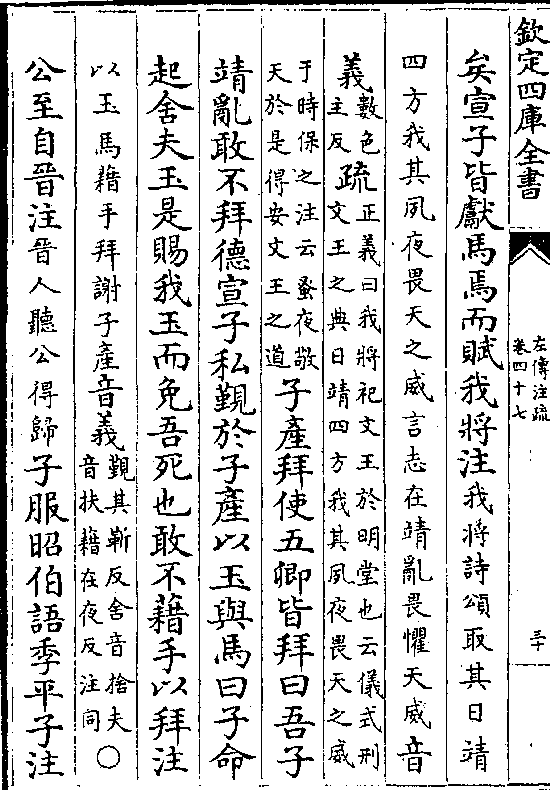 欽定四庫全書
左傳注疏
卷四十七
三十
矣宣子皆獻馬焉而賦我將注我將詩頌取其日靖
四方我其夙夜畏天之威言志在靖亂畏懼天威音
義數色主反疏正義曰我將祀文王於明堂也云儀式刑文王之典日靖四方我其夙夜畏天之威
于時保之注云蚤夜敬天於是得安文王之道子產拜使五卿皆拜曰吾子
靖亂敢不拜德宣子私覲於子產以玉與馬曰子命
起舍夫玉是賜我玉而免吾死也敢不藉手以拜注
以玉馬藉手拜謝子產音義覲其靳反舍音捨夫音扶藉在夜反注同○
公至自晉注晉人聽公得歸子服昭伯語季平子注